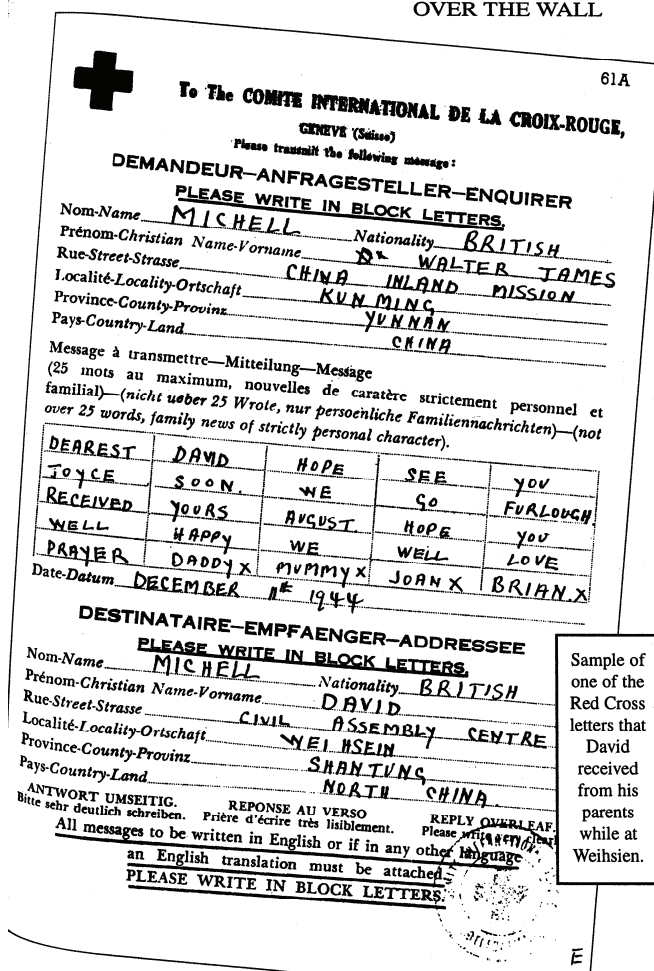 OVER THE WALL
61A
To The COMITE INTERNATIONAL DE LA CROIX-ROUGE,
GENEVE (Suisse)
Please transmit the following message:
DEMANDEUR—ANFRAGESTELLER—ENQUIRER
PLEASE WRITE IN BLOCK LETTERS.
Nom-Name MICHELL Nationality BRITISH
Prénom-Christian Name-Vorname Dr WALTER JAMES
Rue-Street-Strasse CHINA INLAND MISSION
Localité-Locality-Ortschaft KUNMING
Province-County-Provinz YUNNAN
Pays-Country-Land CHINA
Message à transmettre—Mitteilung—Message
(25 mots au maximum, nouvelles de caratère strictement personnel et
familial)—(nicht ueber 25 Wrote, nur persoenliche Familiennachrichten)—(not
over 25 words, family news of strictly personal character).
DEAREST DAVID HOPE SEE YOU
JOYCE SOON. WE GO FURLOUGH.
RECEIVED YOURS AUGUST. HOPE YOU
WELL HAPPY WE WELL LOVE
PRAYER DADDY X MUMMY X JOAN X BRIAN.X
Date-Datum DECEMBER 1944
DESTINATAIRE—EMPFAENGER—ADDRESSEE
PLEASE WRITE IN BLOCK LETTERS.
Nom-Name MICHELL Nationality BRITISH
Prénom-Christian Name-Vorname DAVID
Rue-Street-Strasse CIVIL ASSEMBLY CENTRE
Localité-Locality-Ortschaft WEI HSEIN
Province-County-Provinz SHANTUNG
Pays-Country-Land NORTH CHINA.
ANTWORT UMSEITIG. REPONSE AU VERSO REPLY OVERLEAF.
Bitte sehr deutlich schreiben. Prière d'écrire très lisiblement. Please write very
All messages to be written in English or if in any other language
an English translation must be attached.
PLEASE WRITE IN BLOCK LETTERS.
E
Sample of
one of the
Red Cross
letters that
David
received
from his
parents
while at
Weihsien.